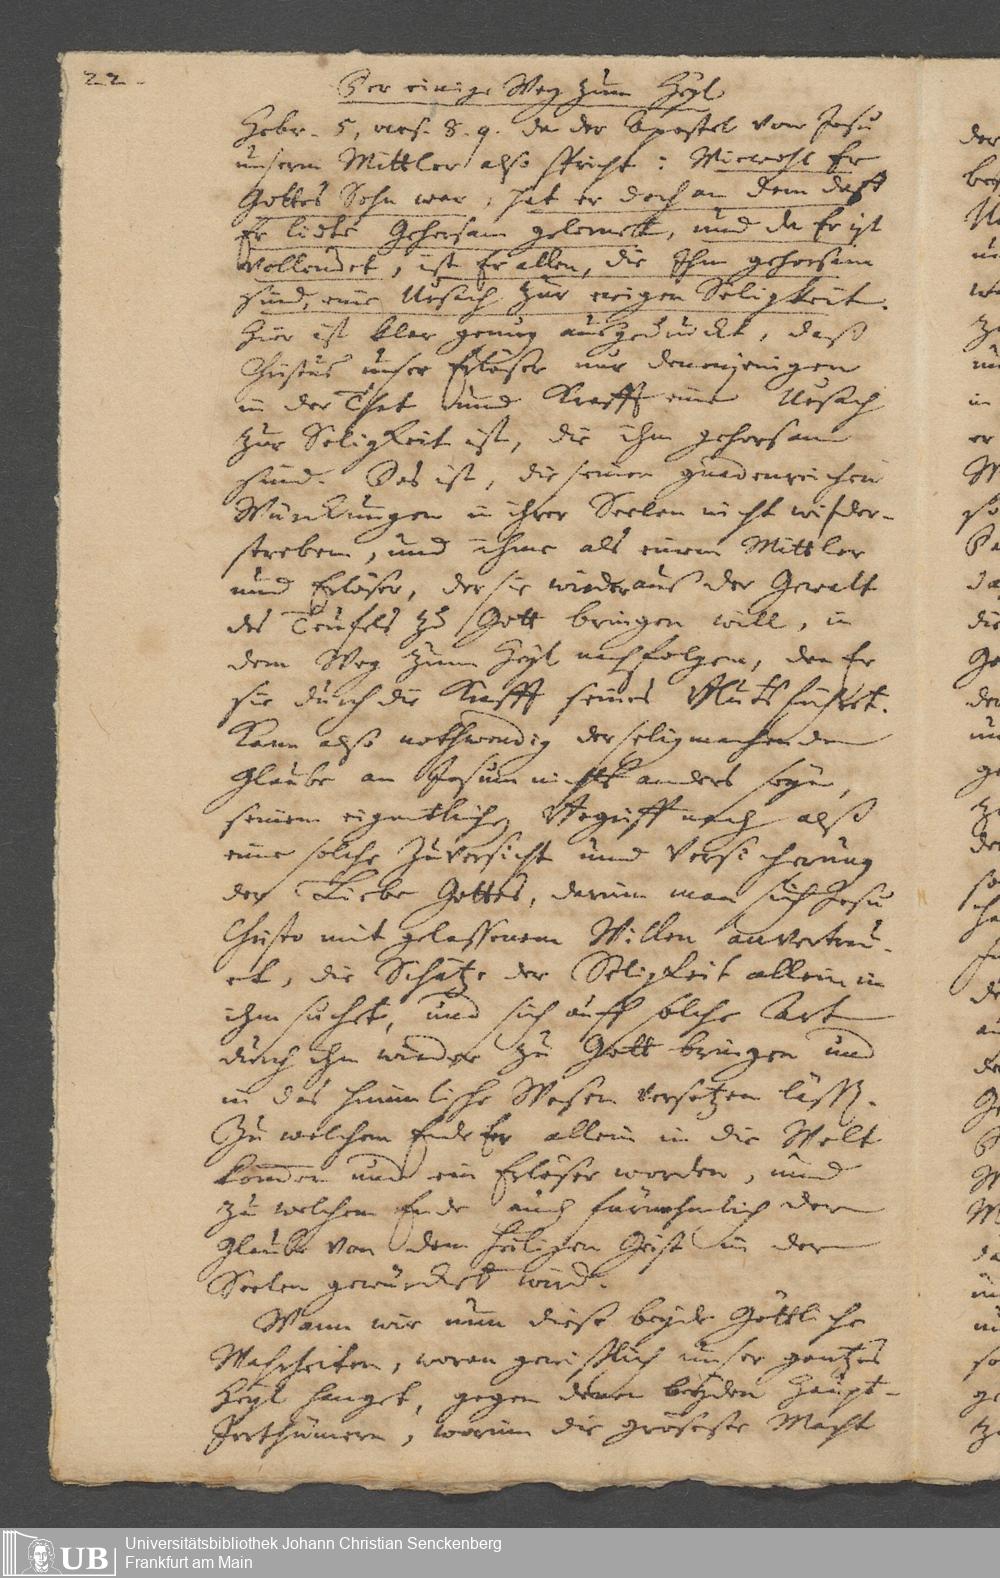 22.
Der einige Weg zum Heyl
Hebr. 5, vers. 8. 9. da der Apostel von Jesu
unserm Mittler also spricht: Wiewohl Er
Gottes Sohn war, hat er doch an dem daß
Er lidte Gehorsam gelernet, und da Er ist
vollendet, ist Er allen, die Ihm gehorsam
sind, eine Ursach zur ewigen Seligkeit.
Hier ist klar genug außgedruckt, daß
Christus unser Erlöser nur denenjenigen
in der That und Krafft eine Ursach
zur Seligkeit ist, die ihm gehorsam
sind. Das ist, die seinen gnadenreichen
Würckungen in ihrer Seelen nicht wider-
streben, und ihme als einem Mittler
und Erlöser, der sie wieder aus der Gewalt
des Teufels zu Gott bringen will, in
dem Weg zum Heyl nachfolgen, den Er
sie durch die Krafft seines Bluts führet.
Kann also nothwendig der seligmachende
Glaube an Jesum nichts anders seyn,
seinem eigentlichen Begriff nach alß
eine solche Zuversicht und Versicherung
der Liebe Gottes, darinn man sich Jesu
Christo mit gelassenem Willen anvertrau-
et, die Schätze der Seligkeit allein in
ihm suchet, und sich auff solche Art
durch ihn wieder zu Gott bringen und
in das himmlische Wesen versetzen lässt.
Zu welchem Ende Er allein in die Welt
kommen und ein Erlöser worden, und
zu welchem Ende auch fürnehmlich der
Glaube von dem heiligen Geist in der
Seelen gewürcket wird.
Wann wir nun diese beyde Göttliche
Wahrheiten, woran gewißlich unser gantzes
Heyl hanget, gegen denen beyden Haupt-
Irrthümern, worinn die gröseste Macht
Universitätsbibliothek Johann Christian Senckenberg
Frankfurt am Main
UB